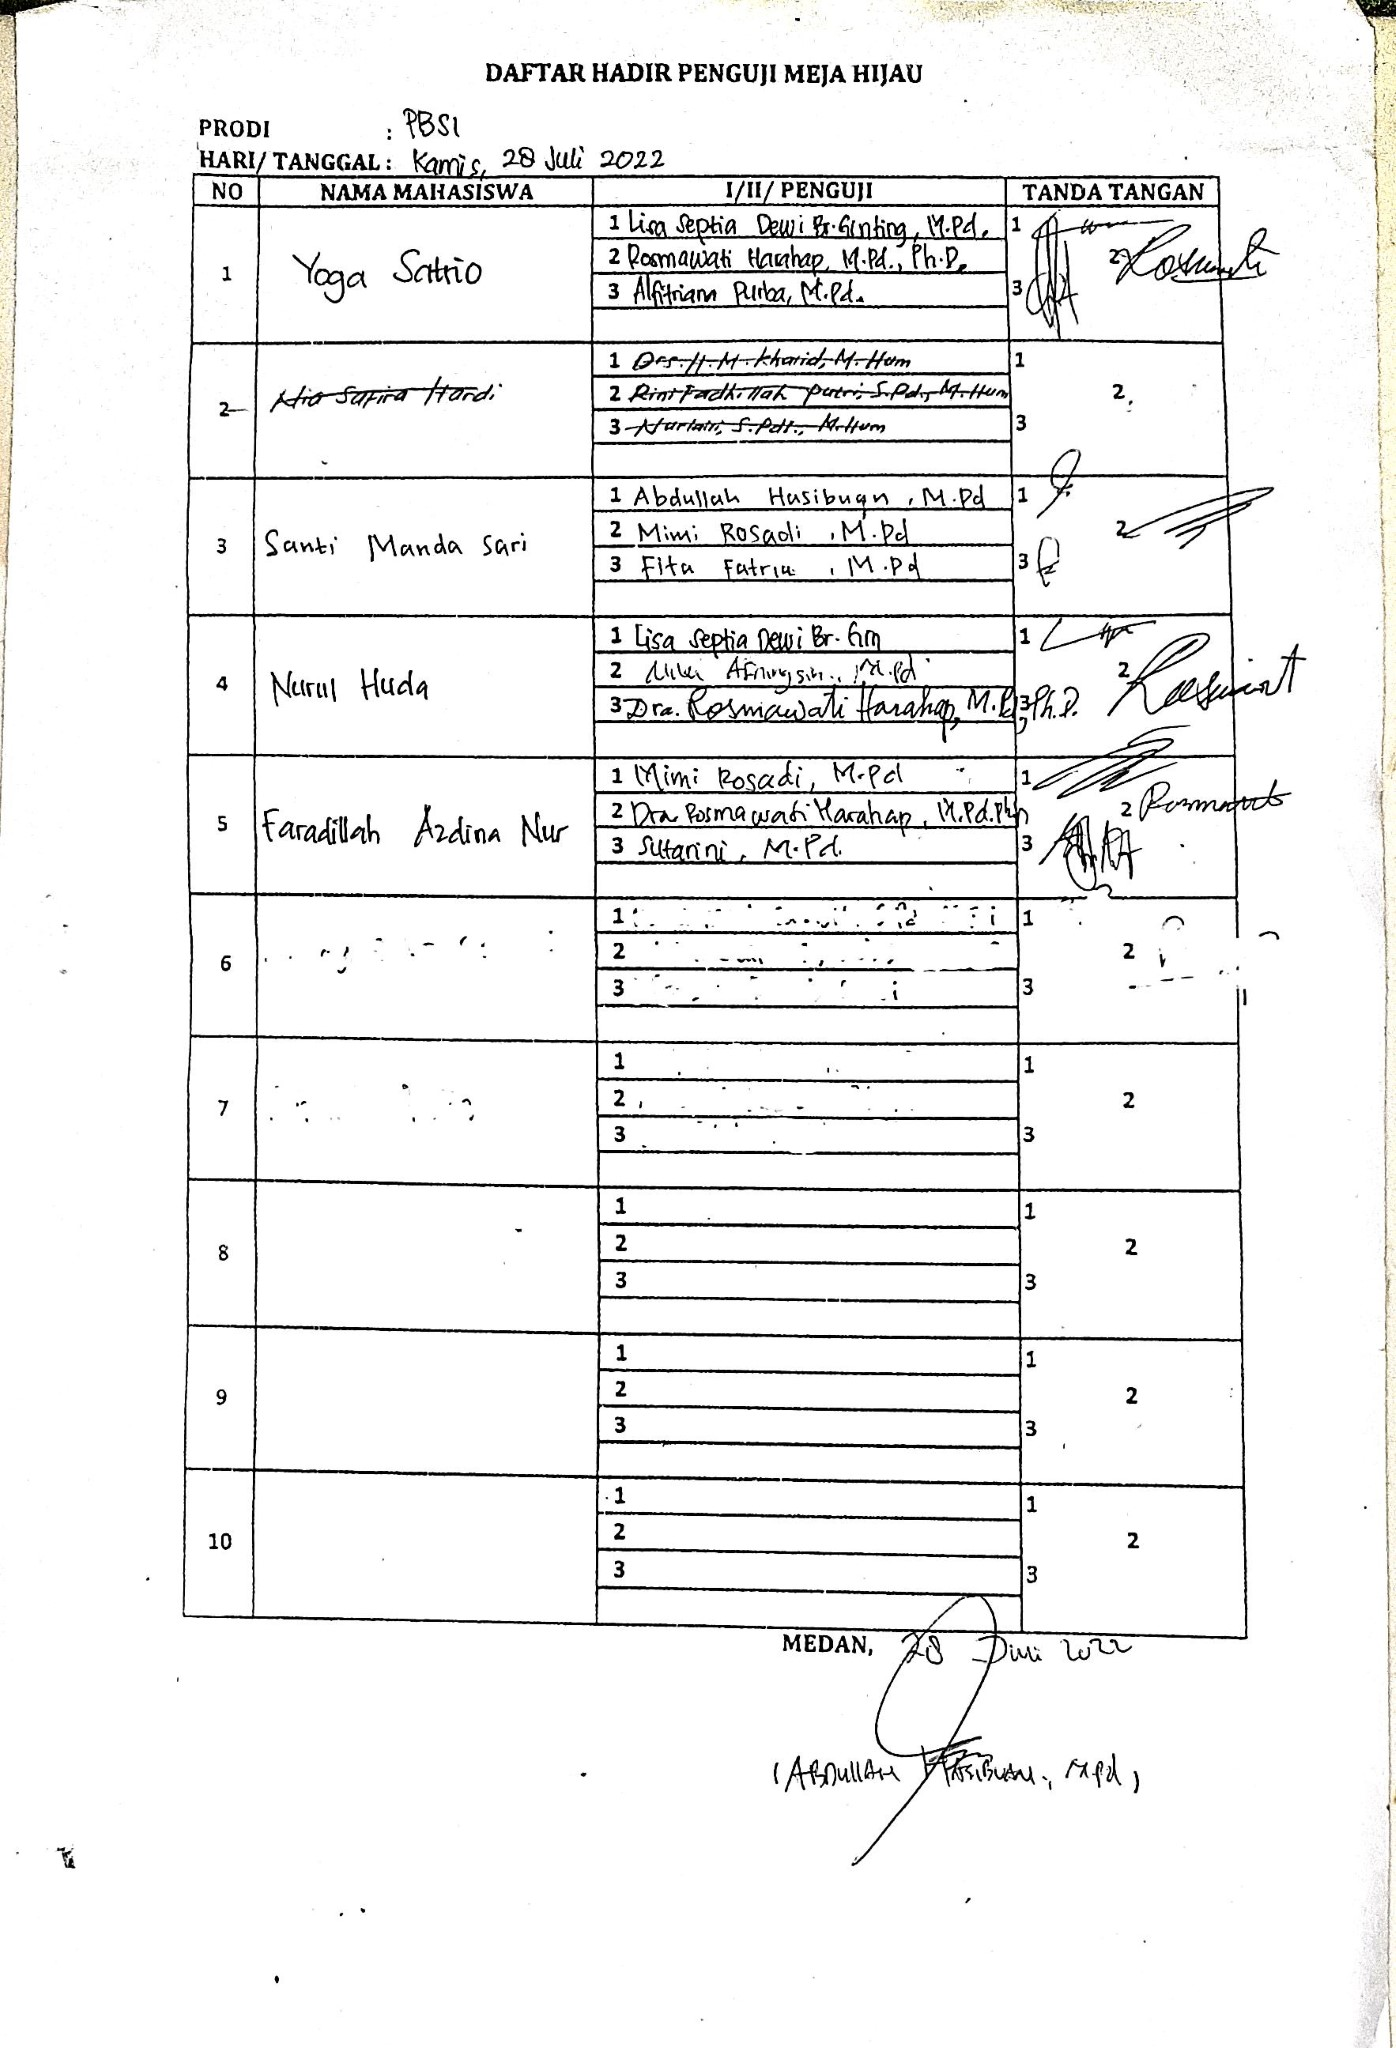 DAFTAR HADIR PENGUJI MEJA HIJAU
PRODI : PBSI
HARI/ TANGGAL : Kamis, 28 Juli 2022
NO NAMA MAHASISWA I/II/ PENGUJI TANDA TANGAN
1 Yoga Satrio
1 Lisa Septia Dewi Br.Ginting, M.Pd. 1
2 Rosmawati Harahap, M.Pd., Ph.D. 2
3 Alfitriani Purba, M.Pd. 3
2 Nia Safira Hardi
1 Drs. H. M. Kharid, M. Hum 1
2 Rini Fadhillah Putri, S.Pd., M.Hum 2
3 S.Pdi., M.Hum 3
3 Santi Manda Sari
1 Abdullah Hasibuan, M.Pd 1
2 Mimi Rosadi, M.Pd 2
3 Fita Fatria, M.Pd 3
4 Nurul Huda
1 Lisa Septia Dewi Br. Gin 1
2 M.Pd 2
3 Dra. Rosmawati Harahap, M.Pd, Ph.D. 3
5 Faradillah Azdina Nur
1 Mimi Rosadi, M.Pd 1
2 Dra. Rosmawati Harahap, M.Pd.Ph.D 2
3 Sutarini, M.Pd. 3
6
1 1
2 2
3 3
7
1 1
2 2
3 3
8
1 1
2 2
3 3
9
1 1
2 2
3 3
10
1 1
2 2
3 3
MEDAN, 28 Juli 2022
(ABDULLAH HASIBUAN, M.Pd)